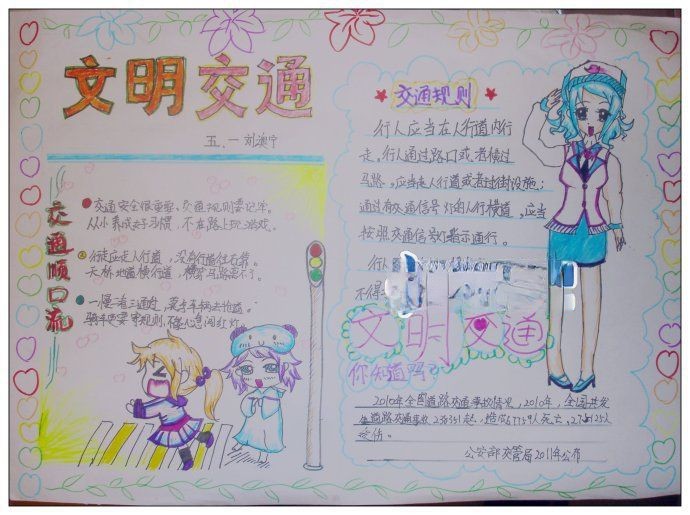 文明交通
五.一 刘
交通顺口流
交通安全很重要,交通规则要记牢。
从小养成好习惯,不在路上玩游戏。
行走应走人行道,没有行道往右靠。
天桥地道横行道,横穿马路
一慢二看三通过,莫与车辆去抢道。
骑车更要守规则,不能心急闯红灯
交通规则
行人应当在人行道内行
走。行人通过路口或者横过
马路。应当走人行道或者过街设施;
通过有交通信号灯的人行横道,应当
按照交通信号灯指示通行。
行
不得
文明交通
你知道吗?
2010年全国道路交通事故情况,2010年,全国共发
生道路交通事故
受伤。
公安部交管局2011年公布